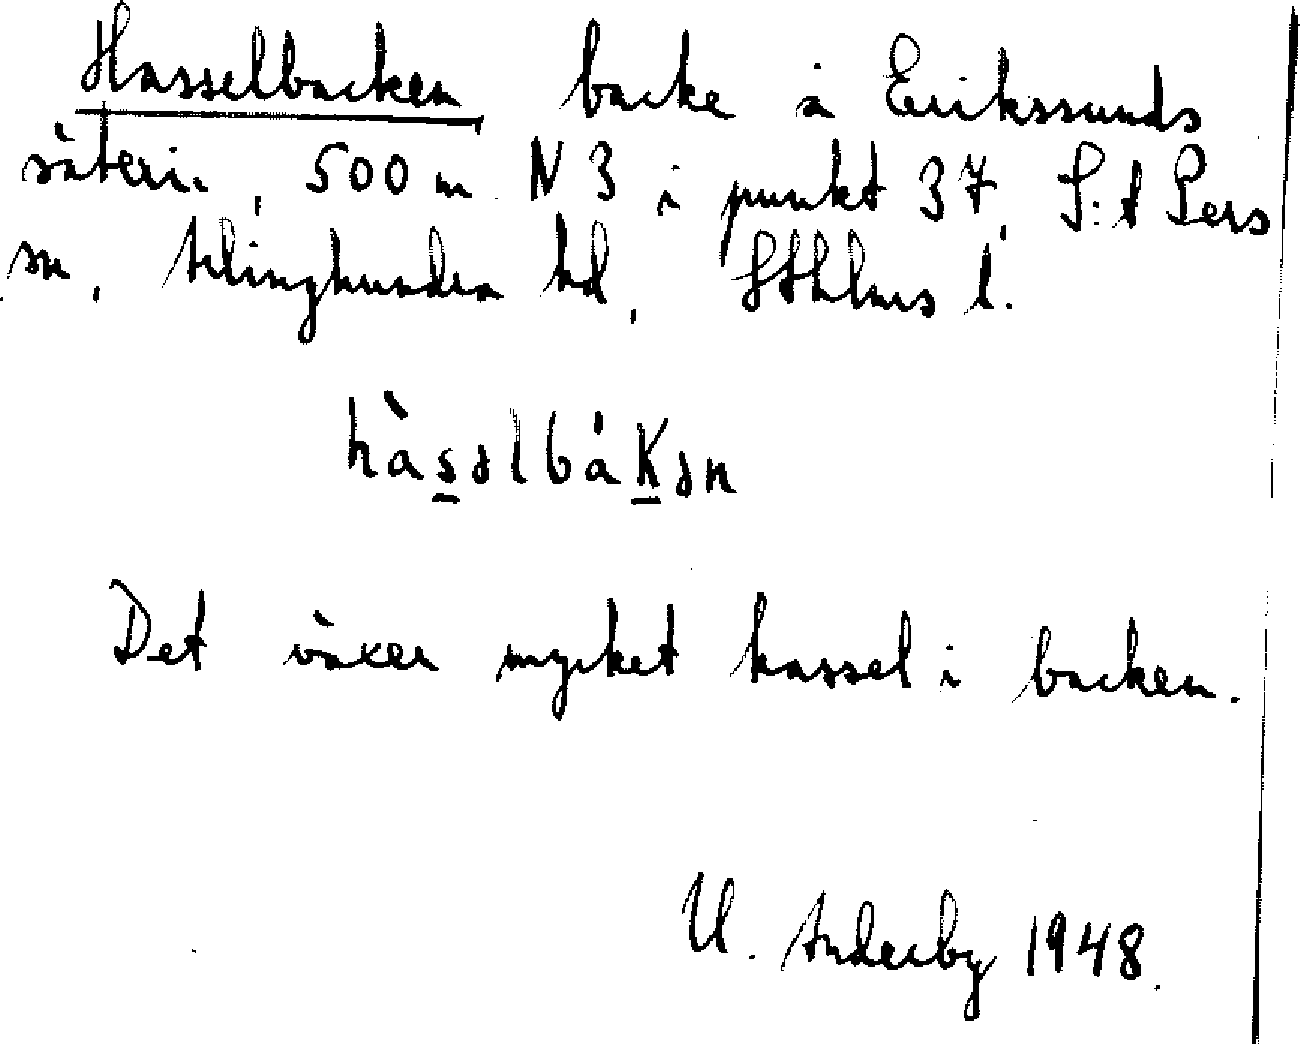 Hasselbacken, backe å Erikssunds
säteri, 500 m N 3 i punkt 37, S:t Pers
sn, Ärlinghundra hd, Sthlms l.
hàsəlbákən
Det växer mycket hassel i backen.
U. Anderby 1948.